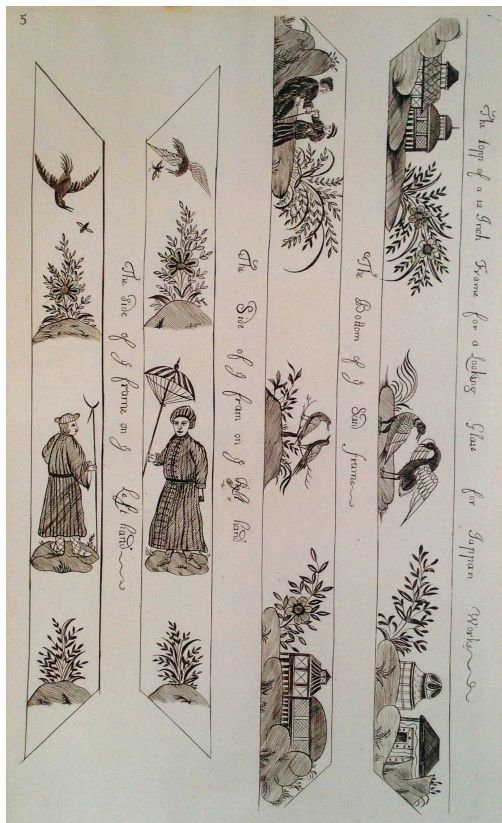 5
The topp of a 12 Inch Frame for a Looking Glass for Iappan Worke
The Bottom of y Said frame
The Side of y fram on y hand
The Side of y frame on y left hand